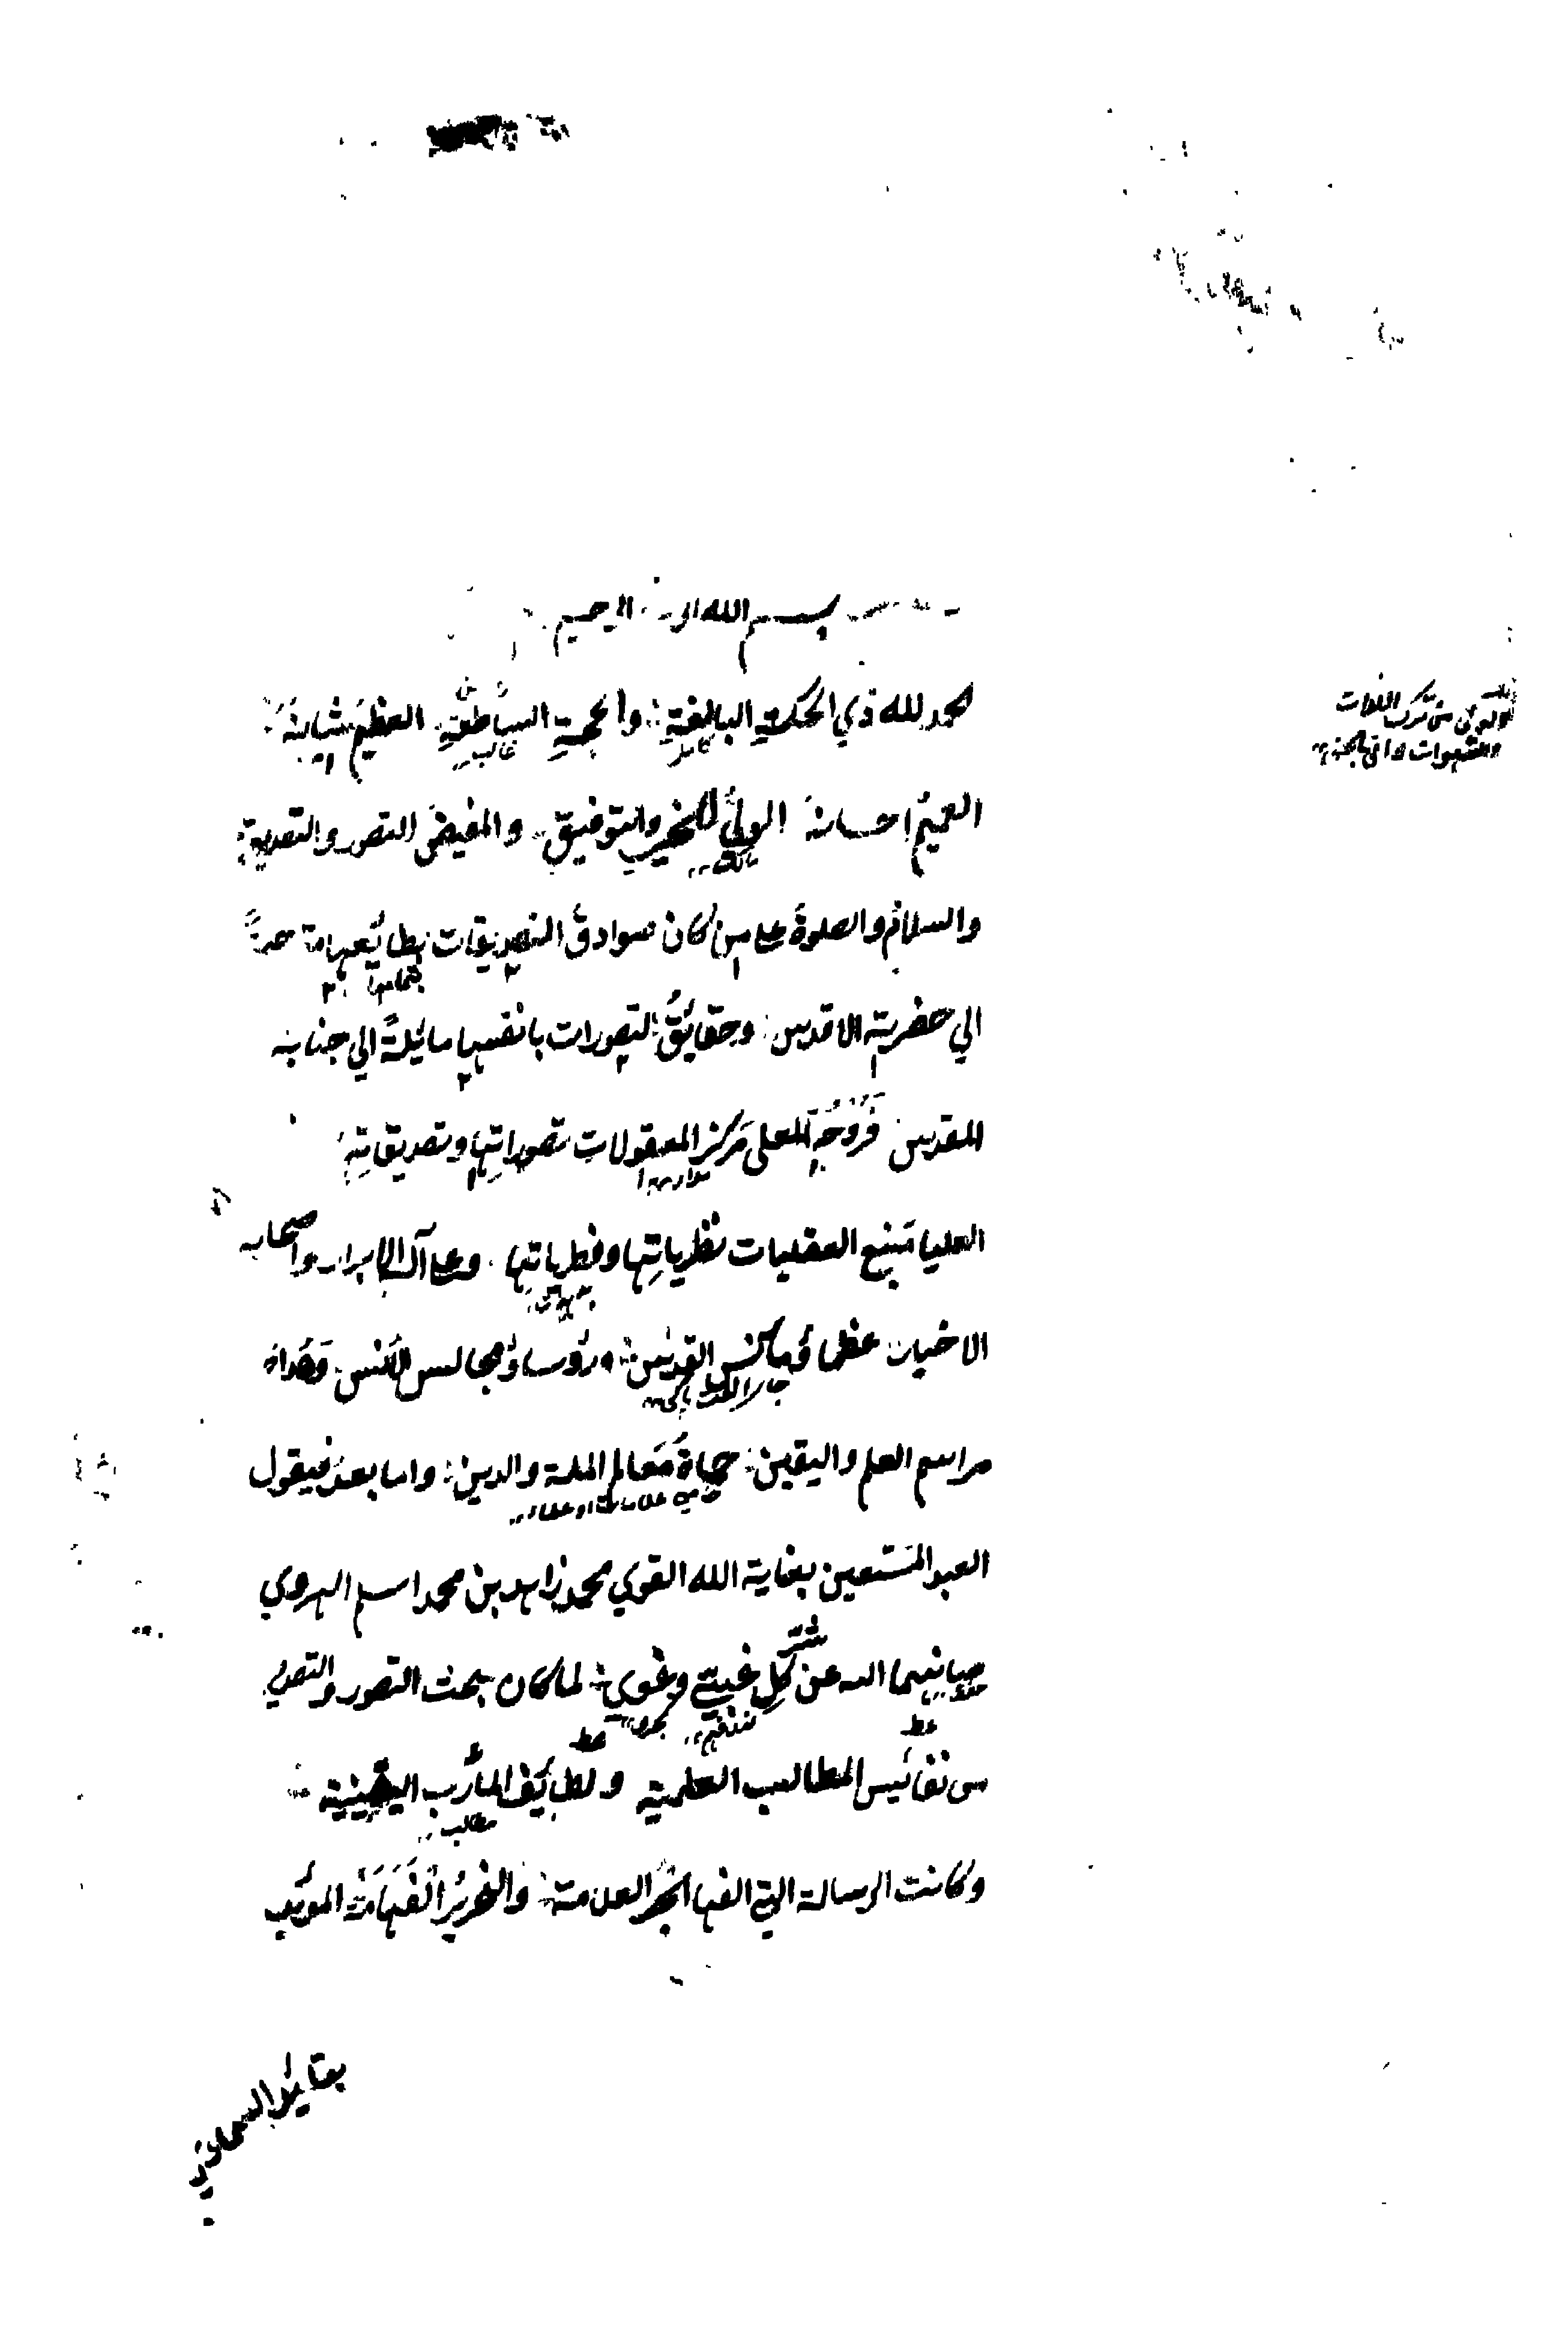 بسم الله الر الرحيم
لحمد لله ذي الحكمة البالغة والحجة الساطعة العظيم شانه
كامل
غالب
العميم احسانه الولي للخير والتوفيق والمفيض التصور والتصديق
مالك
والسلام والصلوة على من كان صوادق التصديقات بطبائعها متوجهة
الي حضرته الاقدس وحقائق التصورات بانفسها مائلة الي جنابه
المقدس فروحه المعلى مركز المعقولات تصوراتها وتصديقاتها
العليا منبع العقليات نظرياتها وفطرياتها وعلى آله الابرار واصحابه
الاخيار عظماؤ مجالس القدس ورؤساؤ مجالس الانس وهداة
مراسم العلم واليقين حماة معالم الملة والدين واما بعد فيقول
العبد المستعين بعناية الله القوي محمد زاهد بن محمد اسلم الهروي
صيانهما الله عن شر كل غبي وغوي لما كان بحث التصور والتصديق
من نفائيس المطالب العلمية ولطايف المأرب اليقينية
مطالب
وكانت الرسالة التي الفها الحبر العلامة والنحرير الفهامة المؤيد